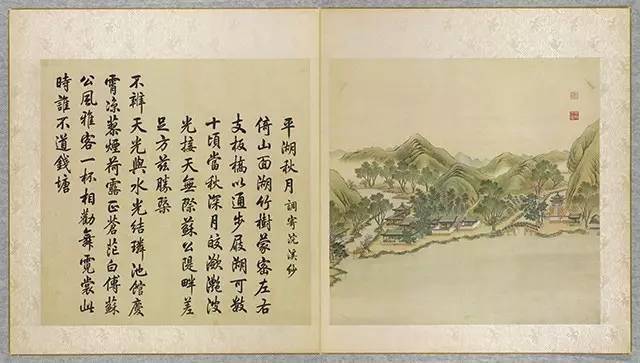 平湖秋月 調寄浣溪紗
倚山面湖竹樹蒙密左右
支板橋以通步屧湖可數
十頃當秋深月皎瀲灧波
光接天無際蘇公隄畔差
足方茲勝槩
不辨天光與水光結璘池館慶
霄凉蓼煙荷露正蒼茫白傅蘇
公風雅客一杯相勸舞霓裳此
時誰不道錢塘